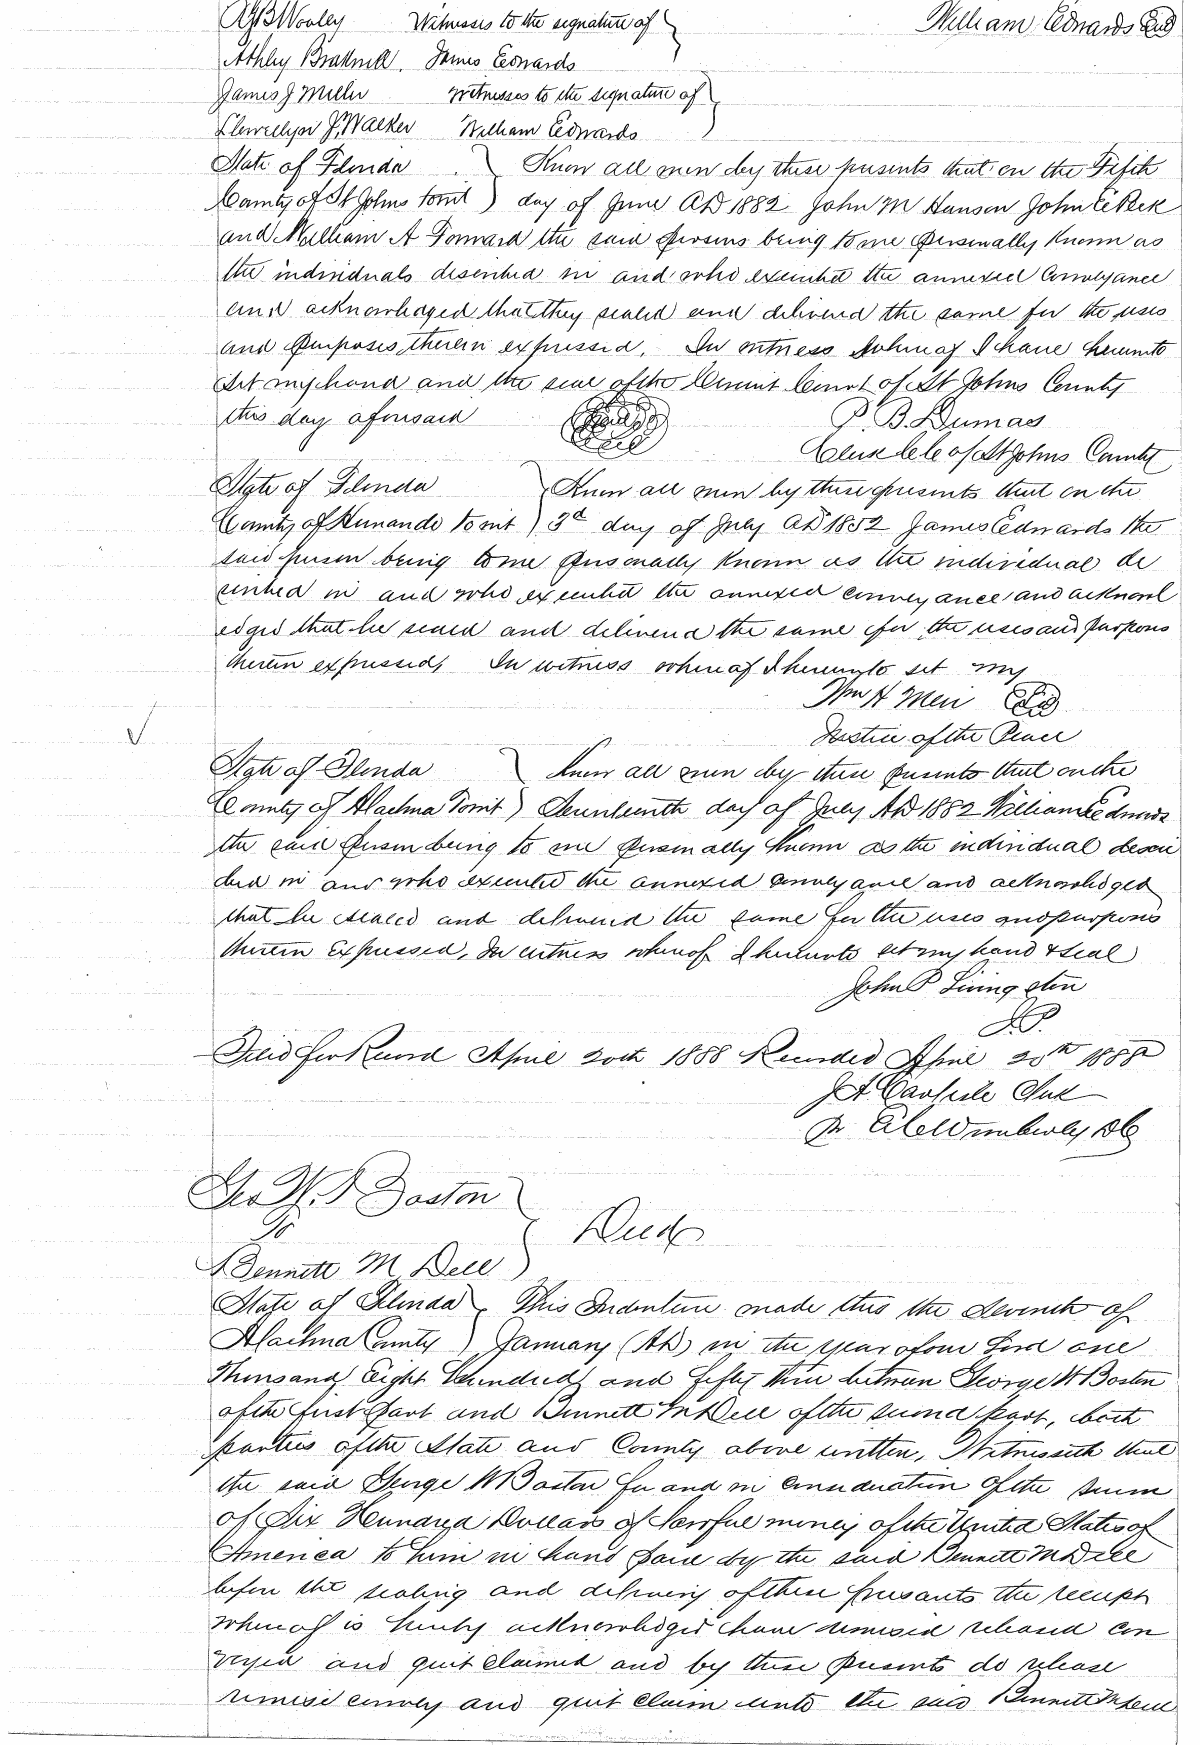 A J B Wooley Witnesses to the signature of William Edwards Seal
Athley James Edwards
James J Miller Witnesses to the signature of
Llewellyn J. Walker William Edwards
State of Florida Know all men by these presents that on the Fifth
County of St Johns towit day of June AD 1882 John M Hanson John C Peck
and William A Forward the said persons being to me personally known as
the individuals described in and who executed the annexed conveyance
and acknowledged that they sealed and delivered the same for the uses
and purposes therein expressed. In witness whereof I have hereunto
set my hand and the seal of the Circuit Court of St Johns County
this day aforesaid P. B. Dumas
Clerk C C of St Johns County
State of Florida Know all men by these presents that on the
County of Hernando towit 3d day of July AD 1852 James Edwards the
said person being to me personally known as the individual de
scribed in and who executed the annexed conveyance and acknowl
edged that he sealed and delivered the same for the uses and purposes
therein expressed, In witness whereof I hereunto set my
Wm H Seal
Justice of the Peace
State of Florida Know all men by these presents that on the
County of Alachua Towit day of July AD 1882 William Edwards
the said person being to me personally known as the individual descri
bed in and who executed the annexed conveyance and acknowledged
that he sealed and delivered the same for the uses and purposes
therein Expressed, In witness whereof I hereunto set my hand & seal
John P Livingston
J.P.
Filed for Record April 20th 1888 Recorded April 20th 1888
J A Carlisle Clk
Pr Wimberly DC
Geo W. Boston
To Deed
Bennett M Dell
State of Florida This Indenture made this the Seventh of
Alachua County January (AD) in the year of our Lord one
Thousand Eight Hundred and fifty three between George W Boston
of the first part and Bennett M Dell of the second part, both
parties of the State and County above written, Witnesseth that
the said George W Boston for and in consideration of the sum
of Six Hundred Dollars of lawful money of the United States of
America to him in hand paid by the said Bennett M Dell
before the sealing and delivery of these presants the receipt
whereof is hereby acknowledged have remised released con
veyed and quit claimed and by these presents do release
remise convey and quit claim unto the said Bennett M Dell